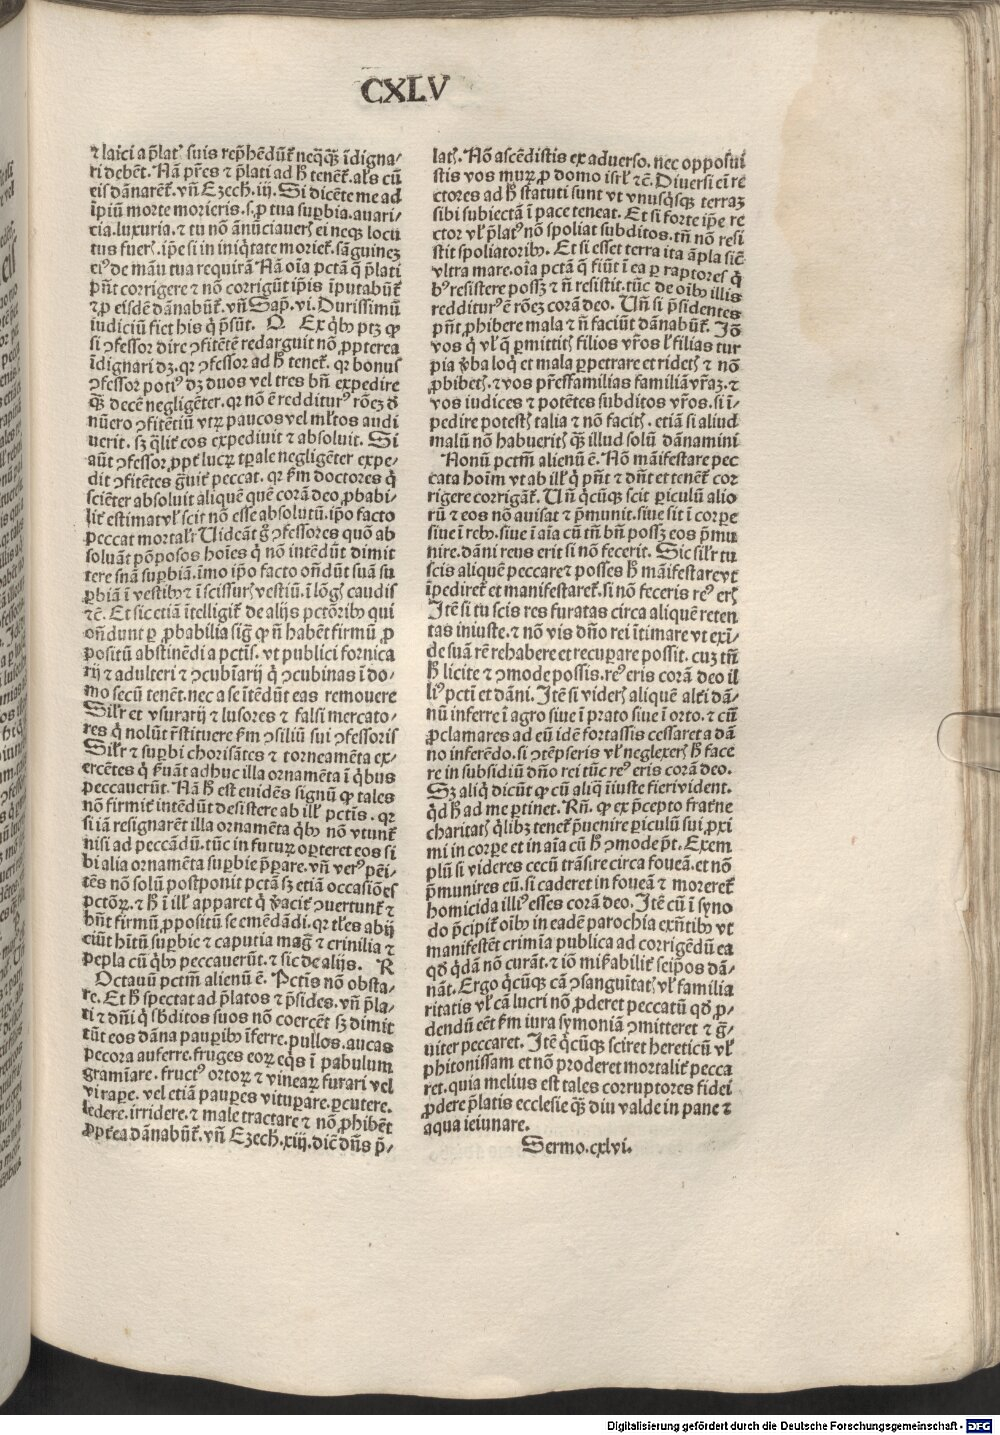 CXLV
⁊ laici a p̄latꝫ suis rep̄hēdūt᷑ neq̄q̄ꝫ īdigna⸗
ri debēt. Nā p̄res ⁊ p̄lati ad h̄ tenēt᷑. al's cū
eis dānarēt᷑. vn̄ Ezech. iij. Si dicēte me ad
īpiū morte morieris. s. ꝓ tua suꝑbia. auari⸗
cia. luxuria. ⁊ tu nō ānūciauerꝫ ei neqꝫ locu
tus fuerꝫ. ip̄e si in iniq̇tate moriet᷑. sāguinez
eiꝰ de manu tua requirā Nā oīa pctā q̄ p̄lati
pn̄t corrigere ⁊ nō corrigūt ip̄is īputabūt᷑
⁊ ꝓ eisdē dānabūt᷑. vn̄ Sap̄. vi. Durissimū
iudiciū fiet his q̇ p̄sūt. Q Ex q̇bꝫ ptꝫ ꝙ
si ꝯfessor dire ꝯfitētē redarguit nō ꝓpterea
īdignari dꝫ. qr ꝯfessor ad h̄ tenet᷑. qr bonus
ꝯfessor potiꝰ dꝫ duos vel tres bn̄ expedire
q̄ꝫ decē negligēter. qr nō ē redditurꝰ rōez d̄
nūero ꝯfitētiū vtrꝫ paucos vel ml'tos audi
uerit. sꝫ q̄lit᷑ eos expediuit ⁊ absoluit. Si
aūt ꝯfessor ꝓpt᷑ lucrꝫ tꝑale negligēter expe⸗
dit ꝯfitētes ḡuit᷑ peccat. qr ẜm doctores q̇
sciēter absoluit aliquē quē corā deo ꝓbabi⸗
lit᷑ estimat vl' scit nō esse absolutū. ip̄o facto
peccat mortalr̄ Uideāt ḡ ꝯfessores quō ab
soluāt pōposos hoīes q̇ nō intēdūt dimit
tere snā suꝑbiā. īmo ip̄o facto on̄dūt suā su
ꝑbiā ī vestibꝫ ⁊ ī scissurꝫ vestiū. ī lōgꝫ caudis
⁊c̄. Et sic etiā ītelligit᷑ de alijs pctōribꝫ qui
on̄dunt ꝑ ꝓbabilia sig̅ ꝙ n̄ habēt firmū ꝓ
positū abstinēdi a pctīs. vt publici fornica
rij ⁊ adulteri ⁊ ꝯcubīarij q̇ ꝯcubinas ī do⸗
mo secū tenēt. nec a se ītēdūt eas remouere
Silr̄ et vsurarij ⁊ lusores ⁊ falsi mercato⸗
res q̇ nolūt r̄stituere ẜm ꝯsiliū sui ꝯfessoris
Silr̄ ⁊ suꝑbi chorisātes ⁊ torneamēta ex⸗
ercētes q̇ ẜuāt adhuc illa ornamēta ī q̇bus
peccauerūt. Nā h̄ est euidēs signū ꝙ tales
nō firmit᷑ intēdūt desistere ab ill' pctīs. qr
si iā resignarēt illa ornamēta q̇bꝫ nō vtunt᷑
nisi ad peccādū. tūc in futurꝫ oꝑteret eos si
bi alia ornamēta suꝑbie p̄ꝑare. vn̄ verꝰ pēi⸗
tēs nō solū postponit pctā sꝫ etiā occasiōes
pctōrꝫ. ⁊ h̄ ī ill' apparet q̇ v̄acit᷑ ꝯuertunt᷑ ⁊
hn̄t firmū ꝓpositū se emēdādi. qr tl'es abij
ciūt hītū suꝑbie ⁊ caputia mag̅ ⁊ crinilia ⁊
pepla cū q̇bꝫ peccauerūt. ⁊ sic de alijs. R
Octauū pctm̄ alienū ē. Pctīs nō obsta⸗
re. Et h̄ spectat ad p̄latos ⁊ p̄sides. vn̄ p̄la⸗
ti ⁊ dn̄i q̇ sb̄ditos suos nō coercēt sꝫ dimit
tūt eos dāna pauꝑibꝫ īferre. pullos. aucas
pecora auferre. fruges eorꝫ eq̇s ī pabulum
gramīare. fructꝰ ortorꝫ ⁊ vinearꝫ furari vel
vi raꝑe. vel etiā pauꝑes vituꝑare. ꝑcutere.
ledere. irridere. ⁊ male tractare ⁊ nō ꝓhibēt
ꝓpt᷑ea dānabūt᷑. vn̄ Ezech. xiij. dic̄ dn̄s p̄⸗
latꝫ. Nō ascēdistis ex aduerso. nec opposui
stis vos murꝫ ꝓ domo isrl' ⁊c̄. Diuersi em̄ re
ctores ad h̄ statuti sunt vt vnusq̇sqꝫ terraꝫ
sibi subiectā ī pace teneat. Et si forte ip̄e re
ctor vl' p̄latꝰ nō spoliat subditos. tn̄ nō resi
stit spoliatoribꝫ. Et si esset terra ita āpla sic̄
vltra mare. oīa pctā q̄ fiūt ī ea ꝑ raptores q̇
bꝰ resistere possꝫ ⁊ n̄ resistit. tūc de oībꝫ illis
redditurꝰ ē rōez corā deo. Un̄ si p̄sidentes
pn̄t ꝓhibere mala ⁊ n̄ faciūt dānabūt᷑. Jō
vos q̇ vl' q̄ ꝑmittitꝫ filios vr̄os l' filias tur
pia v̄ba loq̇ et mala ꝑpetrare et ridetꝫ ⁊ nō
ꝓhibetꝫ. ⁊ vos pr̄esfamilias familiā vr̄aꝫ. ⁊
vos iudices ⁊ potētes subditos vr̄os. si ī⸗
pedire potestꝫ talia ⁊ nō facitꝫ. etiā si aliud
malū nō habueritꝫ q̄ꝫ illud solū dānamini
Nonū pctm̄ alienū ē. Nō māifestare pec
cata hoīm vt ab ill' q̇ pn̄t ⁊ dn̄t et tenēt᷑ cor
rigere corrigāt᷑. Un̄ q̇cūqꝫ scit ꝑiculū alio
rū ⁊ eos nō auisat ⁊ p̄munit. siue sit ī corꝑe
siue ī rebꝫ. siue ī aīa cū tn̄ bn̄ possꝫ eos p̄mu
nire. dāni reus erit si nō fecerit. Sic silr̄ tu
scis aliquē peccare ⁊ posses h̄ māifestare vt
īpediret᷑ et manifestaret᷑. si nō feceris reꝰ erꝫ
Jtē si tu scis res furatas circa aliquē reten
tas iniuste. ⁊ nō vis dn̄o rei ītimare vt exī⸗
de suā rē rehabere et recuꝑare possit. cuꝫ tn̄
h̄ licite ⁊ ꝯmode possis. reꝰ eris corā deo il
liꝰ pcti et dāni. Jtē si viderꝫ aliquē alt᷑i dā⸗
nū inferre ī agro siue ī prato siue ī orto. ⁊ cū
ꝓclamares ad eū idē fortassis cessaret a dā
no inferēdo. si ꝯtēpseris vl' neglexerꝫ h̄ face
re in subsidiū dn̄o rei tūc reꝰ eris corā deo.
Sꝫ aliq̇ dicūt ꝙ cū aliq̄ īiuste fieri vident.
q̇d h̄ ad me ꝑtinet. Rn̄. ꝙ ex p̄cepto frat᷑ne
charitatꝫ q̇libꝫ tenet᷑ p̄uenire ꝑiculū sui ꝓxi
mi in corꝑe et in aīa cū h̄ ꝯmode p̄t. Exem
plū si videres cecū trāsire circa foueā. et nō
p̄munires eū. si caderet in foueā ⁊ moreret᷑
homicida illiꝰ esses corā deo. Jtē cū ī syno
do p̄cipit᷑ oībꝫ in eadē parochia exn̄tibꝫ vt
manifestēt crimīa publica ad corrigēdū ea
qd̄ q̇dā nō curāt. ⁊ iō mirabilit᷑ seip̄os dā⸗
nāt. Ergo q̇cūqꝫ cā ꝯsanguitatꝫ vl' familia
ritatis vl' cā lucri nō ꝓderet peccatū qd̄ ꝓ⸗
dendū eēt ẜm iura symoniā ꝯmitteret ⁊ ḡ⸗
uiter peccaret. Jtē q̇cūqꝫ sciret hereticū vl'
phitonissam et nō proderet mortalit᷑ pecca
ret. quia melius est tales corruptores fidei
ꝓdere p̄latis ecclesie q̄ꝫ diu valde in pane ⁊
aqua ieiunare.
Sermo. cxlvi.
Digitalisierung gefördert durch die Deutsche Forschungsgemeinschaft - DFG